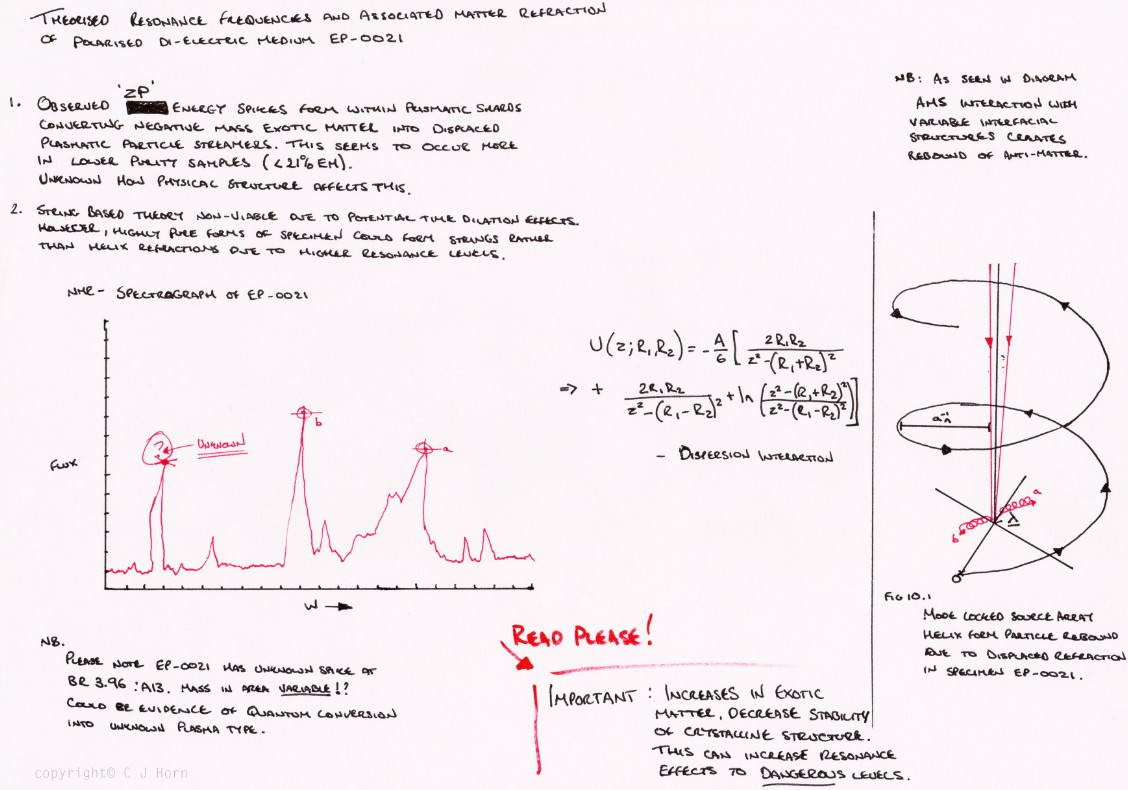 THEORISED RESONANCE FREQUENCIES AND ASSOCIATED MATTER REFRACTION
OF POLARISED DI-ELECTRIC MEDIUM EP-0021
1. OBSERVED 'ZP' ENERGY SPIKES FORM WITHIN PRISMATIC SHARDS
CONVERTING NEGATIVE MASS EXOTIC MATTER INTO DISPLACED
PLASMATIC PARTICLE STREAMERS. THIS SEEMS TO OCCUR MORE
IN LOWER PURITY SAMPLES (<21% EM).
UNKNOWN HOW PHYSICAL STRUCTURE AFFECTS THIS.
2. STRING BASED THEORY NON-VIABLE DUE TO POTENTIAL TIME DILATION EFFECTS.
HOWEVER, HIGHLY PURE FORMS OF SPECIMEN COULD FORM STRINGS RATHER
THAN HELIX REFRACTIONS DUE TO HIGHER RESONANCE LEVELS.
NMR- SPECTROGRAPH OF EP-0021
FLUX
?
UNKNOWN
b
a
W
NB.
PLEASE NOTE EP-0021 HAS UNKNOWN SPIKE AT
BR 3.96 :A13. MASS IN AREA VARIABLE!?
COULD BE EVIDENCE OF QUANTUM CONVERSION
INTO UNKNOWN PLASMA TYPE.
U(z;R₁,R₂) = -A/6 [ 2R₁R₂ / z²-(R₁+R₂)²
=> + 2R₁R₂ / z²-(R₁-R₂)² + ln (z²-(R₁+R₂)² / z²-(R₁-R₂)²)]
- DISPERSION INTERACTION
READ PLEASE!
IMPORTANT : INCREASES IN EXOTIC
MATTER, DECREASE STABILITY
OF CRYSTALLINE STRUCTURE.
THIS CAN INCREASE RESONANCE
EFFECTS TO DANGEROUS LEVELS.
NB: AS SEEN IN DIAGRAM
AMS INTERACTION WITH
VARIABLE INTERFACIAL
STRUCTURES CREATES
REBOUND OF ANTI-MATTER.
a
b
λ
FIG 10.1
MODE LOCKED SOURCE ARRAY
HELIX FORM PARTICLE REBOUND
DUE TO DISPLACED REFRACTION
IN SPECIMEN EP-0021.
copyright© C J Horn